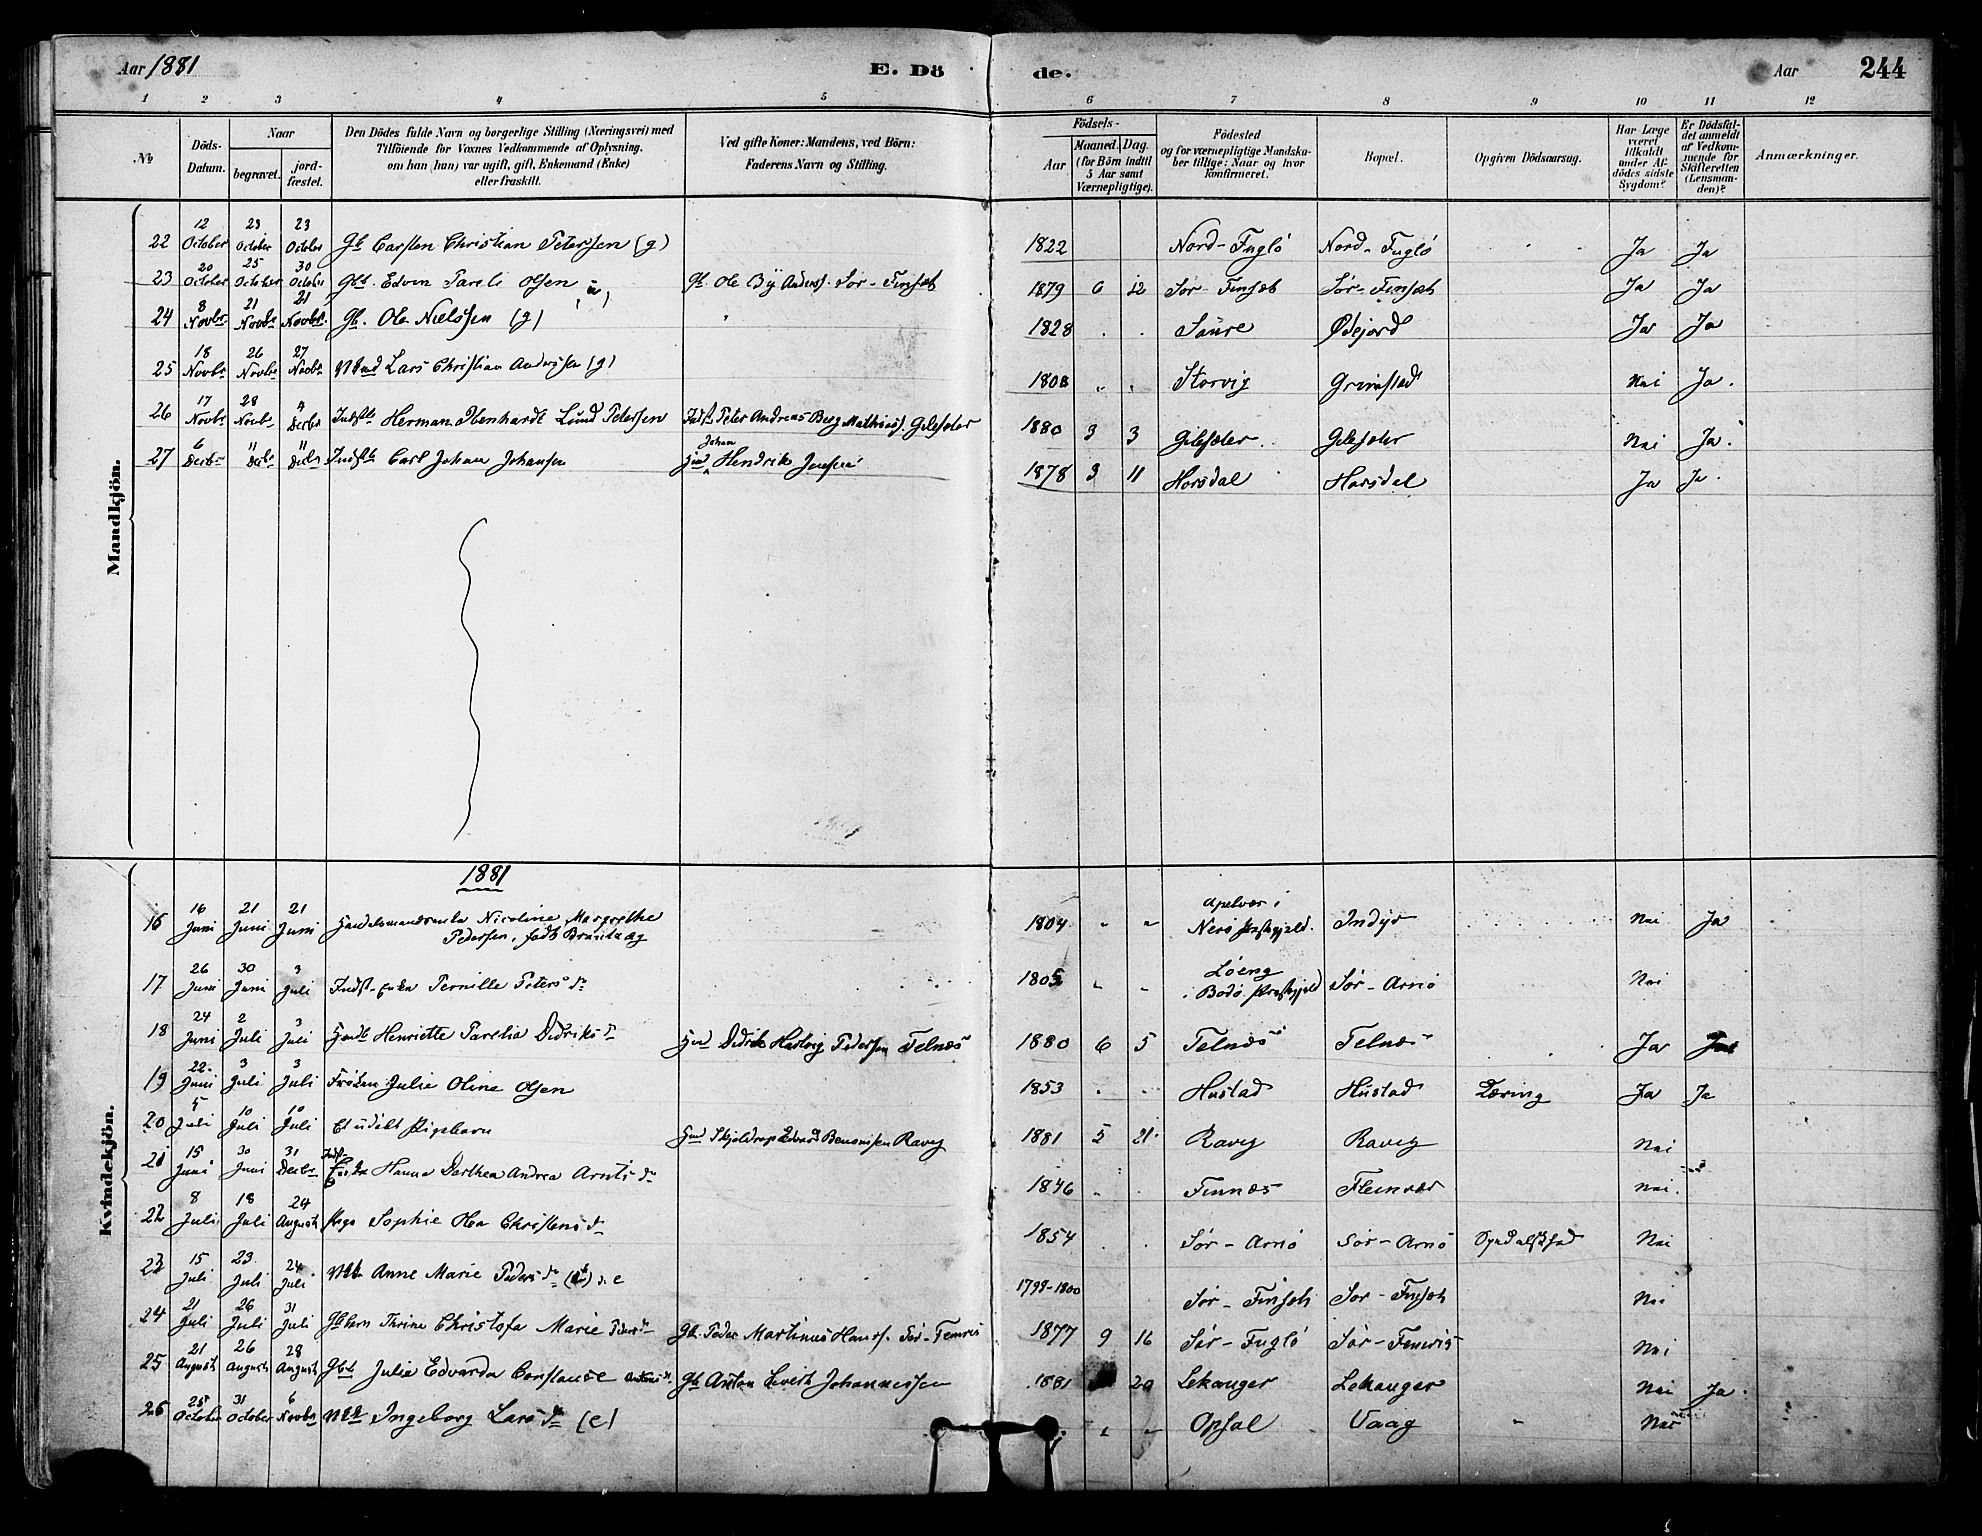 Aar 1881 E. Dö de. Aar 244
1 2 3 4 5 6 7 8 9 10 11 12
No Döds-Datum. Naar begravet. jord-fæstet.
Den Dödes fulde Navn og borgerlige Stilling (Næringsvei) med
Tilföiende for Voxnes Vedkommende af Oplysning,
om han (hun) var ugift, gift, Enkemand (Enke)
eller fraskilt.
Ved gifte Koner: Mandens, ved Börn:
Faderens Navn og Stilling.
Födsels-
Aar Maaned. Dag.
(for Börn indtil
5 Aar samt
Værnepligtige).
Födested
og for værnepligtige Mandska-
ber tillige: Naar og hvor
konfirmeret.
Bopæl.
Opgiven Dödsaarsag.
Har Læge
været
tilkaldt
under Af-
dödes sidste
Sygdom?
Er Dödsfal-
det anmeldt
af Vedkom-
mende for
Skifteretten
(Lensman-
den)?
Anmærkninger.
Mandkjön.
22 12 October 23 October 23 October Gb Carsten Christian Petersen (g) 1822 Nord-Fuglö Nord-Fuglö Ja Ja
23 20 October 25 October 30 October Edvin Olsen Gb. Ole Anders. Sör-Finsæt 1879 6 12 Sör-Finsæt Sör-Finsæt Ja Ja
24 8 Novbr 21 Novbr 21 Novbr. Gb. Ole Nielssen (g) " 1828 . . Saure Ödejord Ja Ja
25 18 Novbr 26 Novbr 27 Novbr Lars Christian Anderssen (g) 1808 " " Storvig Grimstad Nei Ja.
26 17 Novbr 28 Novbr 4 Decbr Herman Lund Petersen Peter Andreas Berg Mathias. Gilesæter 1880 3 3 Gilesæter. Gilesæter Nei Ja.
27 6 Decbr 11 Decbr 11 Decbr Carl Johan Johansen Johan Hendrik Jensen 1878 3 11 Horsdal Horsdal Ja Ja.
Kvindekjön.
1881
16 16 Juni 21 Juni 21 Juni Nicoline Margrethe
Pedersen, födt 1804 " " Apelvær i
Nerö Præstegjeld. Indyr Nei Ja
17 26 Juni 30 Juni 3 Juli Indst-Enke Pernille Peters dr 1805 " " Löeng
i Bodö Præstegjeld Sör-Arnö Nei
18 24 Juni 2 Juli 3 Juli Henriette Parelia Didriks dr Didrik Hartvig Pedersen Telnæs 1880 6 5 Telnæs Telnæs Ja Ja
19 22 Juni 3 Juli 3 Juli Fröken Julie Oline Olsen 1853 . . Hustad Hustad Tæring Ja Ja
20 5 Juli 10 Juli 10 Juli Et udöbt Pigebarn Edvard Ravig 1881 5 21 Ravig Ravig Nei
21 15 Juni 30 Juni 31 Decbr Indst-Enke Hanna Dorthea Andrea Arnts dr 1846 " . Finnæs Fleinvær Nei.
22 8 Juli 18 Juli 24 August Pige Sophie Christens dr 1854 . . Sör-Arnö Sör-Arnö Nei
23 15 Juli 23 Juli 24 Juli Anne Marie Peders dr 1798-1800 Sör-Finsæt Sör-Finsæt Nei
24 21 Juli 26 Juli 31 Juli Trine Christofa Marie Peders dr Gb. Peder Martinus Hans. 1877 9 16 Sör-Fuglö Nei
25 21 August 26 August 28 August Julie Edvarda Constance Gb Anton Johannessen 1881 20 Lekanger Lekanger Nei Ja.
26 25 October 31 October 6 Novbr Ingeborg Lars dr (e) " " Opsal Vaag " Nei